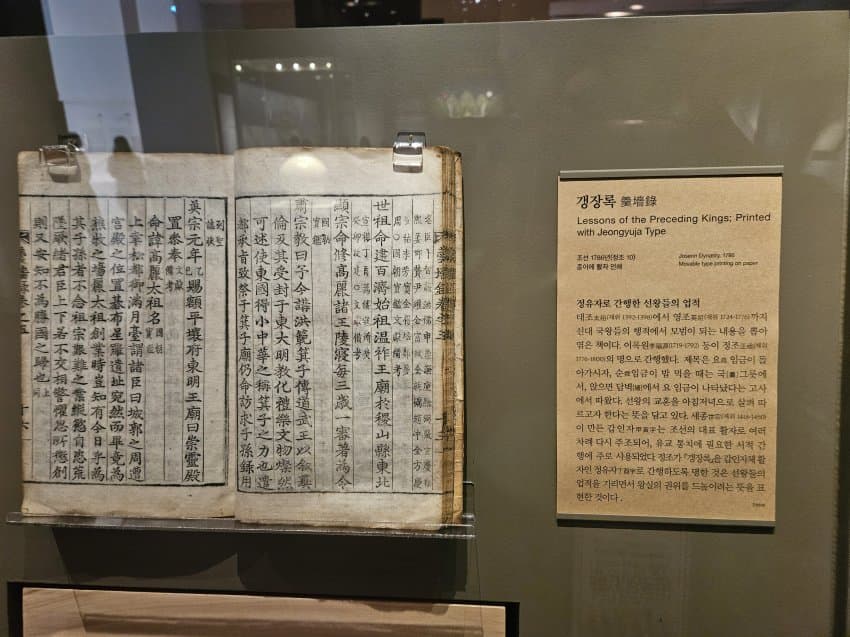 世祖命建百濟始祖溫祚王廟於稷山縣東北
顯宗命修高麗諸王陵寢每三歲一審著為令
國朝寶鑑
肅宗敎曰今講洪範箕子傳道武王以叙彝
倫及其受封于東大明敎化禮樂文物燦然
可述使東國得小中華之稱箕子之力也遣
都承旨致祭于箕子廟仍命訪求子孫錄用
列聖誌狀
英宗元年乙巳賜額平壤府東明王廟曰崇靈殿
置叅奉文獻備考
命諱高麗太祖名國朝寶鑑
上幸松都御滿月臺謂諸臣曰城郭之周遭
宮殿之位置碁布星羅遺址宛然而畢竟為
蕪沒之場麗太祖創業時豈知有今日乎為
其子孫者不念祖宗艱難之業縱慾自恣荒
墜厥緒君臣上下若不交相警惕思所懲創
則又安知不為勝國之歸也同上
갱장록 羹墻錄
Lessons of the Preceding Kings; Printed
with Jeongyuja Type
조선 1786년(정조 10)
종이에 활자 인쇄
Joseon Dynasty, 1786
Movable type printing on paper
정유자로 간행한 선왕들의 업적
태조太祖(재위 1392-1398)에서 영조英祖(재위 1724-1776)까지
선대 국왕들의 행적에서 모범이 되는 내용을 뽑아
엮은 책이다. 이복원李福源(1719-1792) 등이 정조正祖(재위
1776-1800)의 명으로 간행했다. 제목은 요堯 임금이 돌
아가시자, 순舜임금이 밥 먹을 때는 국[羹]그릇에
서, 앉으면 담벽[墻]에서 요 임금이 나타났다는 고사
에서 따왔다. 선왕의 교훈을 아침저녁으로 살펴 따
르고자 한다는 뜻을 담고 있다. 세종世宗(재위 1418-1450)
이 만든 갑인자甲寅字는 조선의 대표 활자로 여러
차례 다시 주조되어, 유교 통치에 필요한 서적 간
행에 주로 사용되었다. 정조가 『갱장록』을 갑인자체 활
자인 정유자丁酉字로 간행하도록 명한 것은 선왕들의
업적을 기리면서 왕실의 권위를 드높이려는 뜻을 표
현한 것이다.